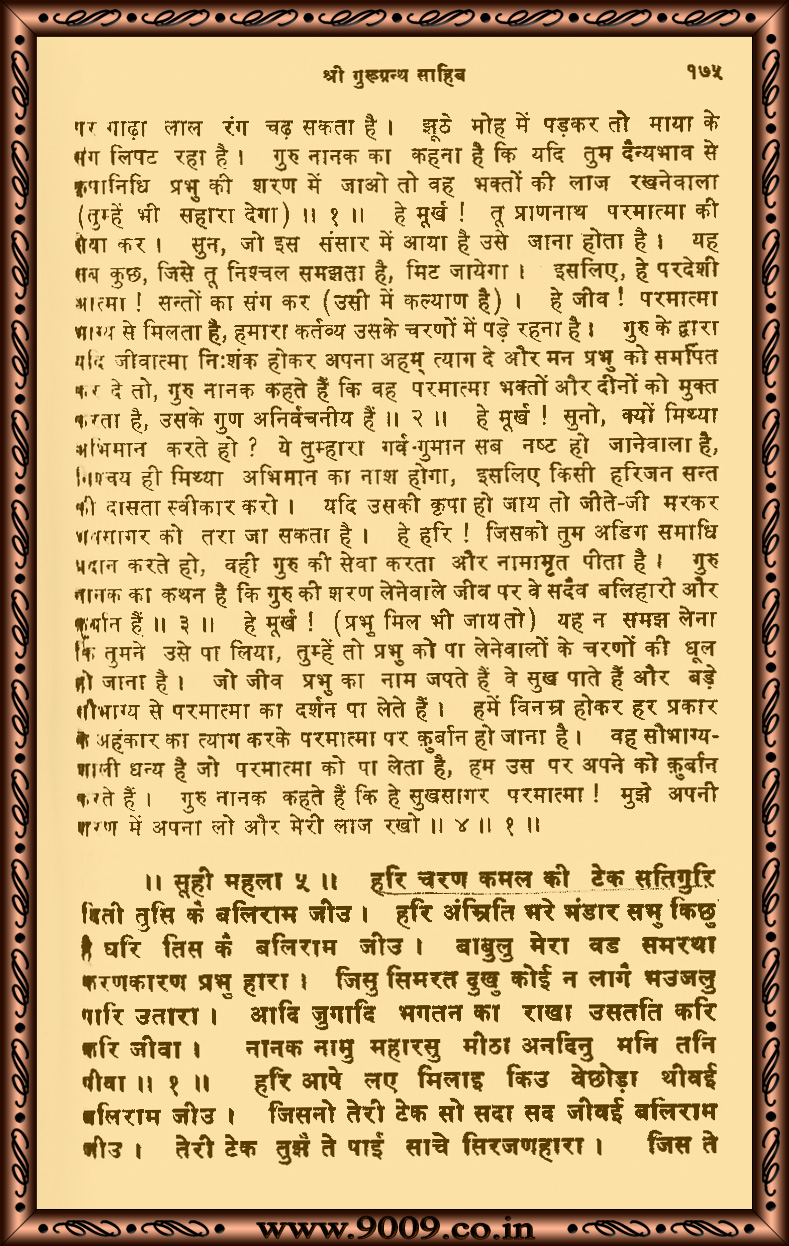 श्री गुरूग्रन्थ साहिब १७५
पर गाढ़ा लाल रंग चढ़ सकता है। झूठे मोह में पड़कर तो माया के
संग लिपट रहा है। गुरु नानक का कहना है कि यदि तुम दैन्यभाव से
कृपानिधि प्रभु की शरण में जाओ तो वह भक्तों की लाज रखनेवाला
(तुम्हें भी सहारा देगा) ॥ १ ॥ हे मूर्ख! तू प्राणनाथ परमात्मा की
सेवा कर। सुन, जो इस संसार में आया है उसे जाना होता है। यह
सब कुछ, जिसे तू निश्चल समझता है, मिट जायेगा। इसलिए, हे परदेशी
आत्मा! सन्तों का संग कर (उसी में कल्याण है)। हे जीव! परमात्मा
भाग्य से मिलता है, हमारा कर्तव्य उसके चरणों में पड़े रहना है। गुरु के द्वारा
यदि जीवात्मा नि:शंक होकर अपना अहम् त्याग दे और मन प्रभु को समर्पित
कर दे तो, गुरु नानक कहते हैं कि वह परमात्मा भक्तों और दीनों को मुक्त
करता है, उसके गुण अनिर्वचनीय हैं ॥ २ ॥ हे मूर्ख! सुनो, क्यों मिथ्या
अभिमान करते हो? ये तुम्हारा गर्व-गुमान सब नष्ट हो जानेवाला है,
निश्चय ही मिथ्या अभिमान का नाश होगा, इसलिए किसी हरिजन सन्त
की दासता स्वीकार करो। यदि उसकी कृपा हो जाय तो जीते-जी मरकर
भवसागर को तरा जा सकता है। हे हरि! जिसको तुम अडिग समाधि
प्रदान करते हो, वही गुरु की सेवा करता और नामामृत पीता है। गुरु
नानक का कथन है कि गुरु की शरण लेनेवाले जीव पर वे सदैव बलिहारी और
कुर्बान हैं ॥ ३ ॥ हे मूर्ख! (प्रभु मिल भी जाय तो) यह न समझ लेना
कि तुमने उसे पा लिया, तुम्हें तो प्रभु को पा लेनेवालों के चरणों की धूल
हो जाना है। जो जीव प्रभु का नाम जपते हैं वे सुख पाते हैं और बड़े
सौभाग्य से परमात्मा का दर्शन पा लेते हैं। हमें विनम्र होकर हर प्रकार
के अहंकार का त्याग करके परमात्मा पर क़ुर्बान हो जाना है। वह सौभाग्य-
शाली धन्य है जो परमात्मा को पा लेता है, हम उस पर अपने को क़ुर्बान
करते हैं। गुरु नानक कहते हैं कि हे सुखसागर परमात्मा! मुझे अपनी
शरण में अपना लो और मेरी लाज रखो ॥ ४ ॥ १ ॥
॥ सूही महला ५ ॥ हरि चरण कमल की टेक सतिगुरि
दिती तुसि कै बलिराम जीउ। हरि अंम्रिति भरे भंडार सभु किछु
है घरि तिस कै बलिराम जीउ। बाबुलु मेरा वड समरथा
करणकारण प्रभु हारा। जिसु सिमरत दुखु कोई न लागै भउजलु
पारि उतारा। आदि जुगादि भगतन का राखा उसतति करि
करि जीवा। नानक नामु महारसु मीठा अनदिनु मनि तनि
पीवा ॥ १ ॥ हरि आपे लए मिलाइ किउ वेछोड़ा थीवई
बलिराम जीउ। जिसनो तेरी टेक सो सदा सद जीवई बलिराम
जीउ। तेरी टेक तुझै ते पाई साचे सिरजणहारा। जिस ते
www.9009.co.in